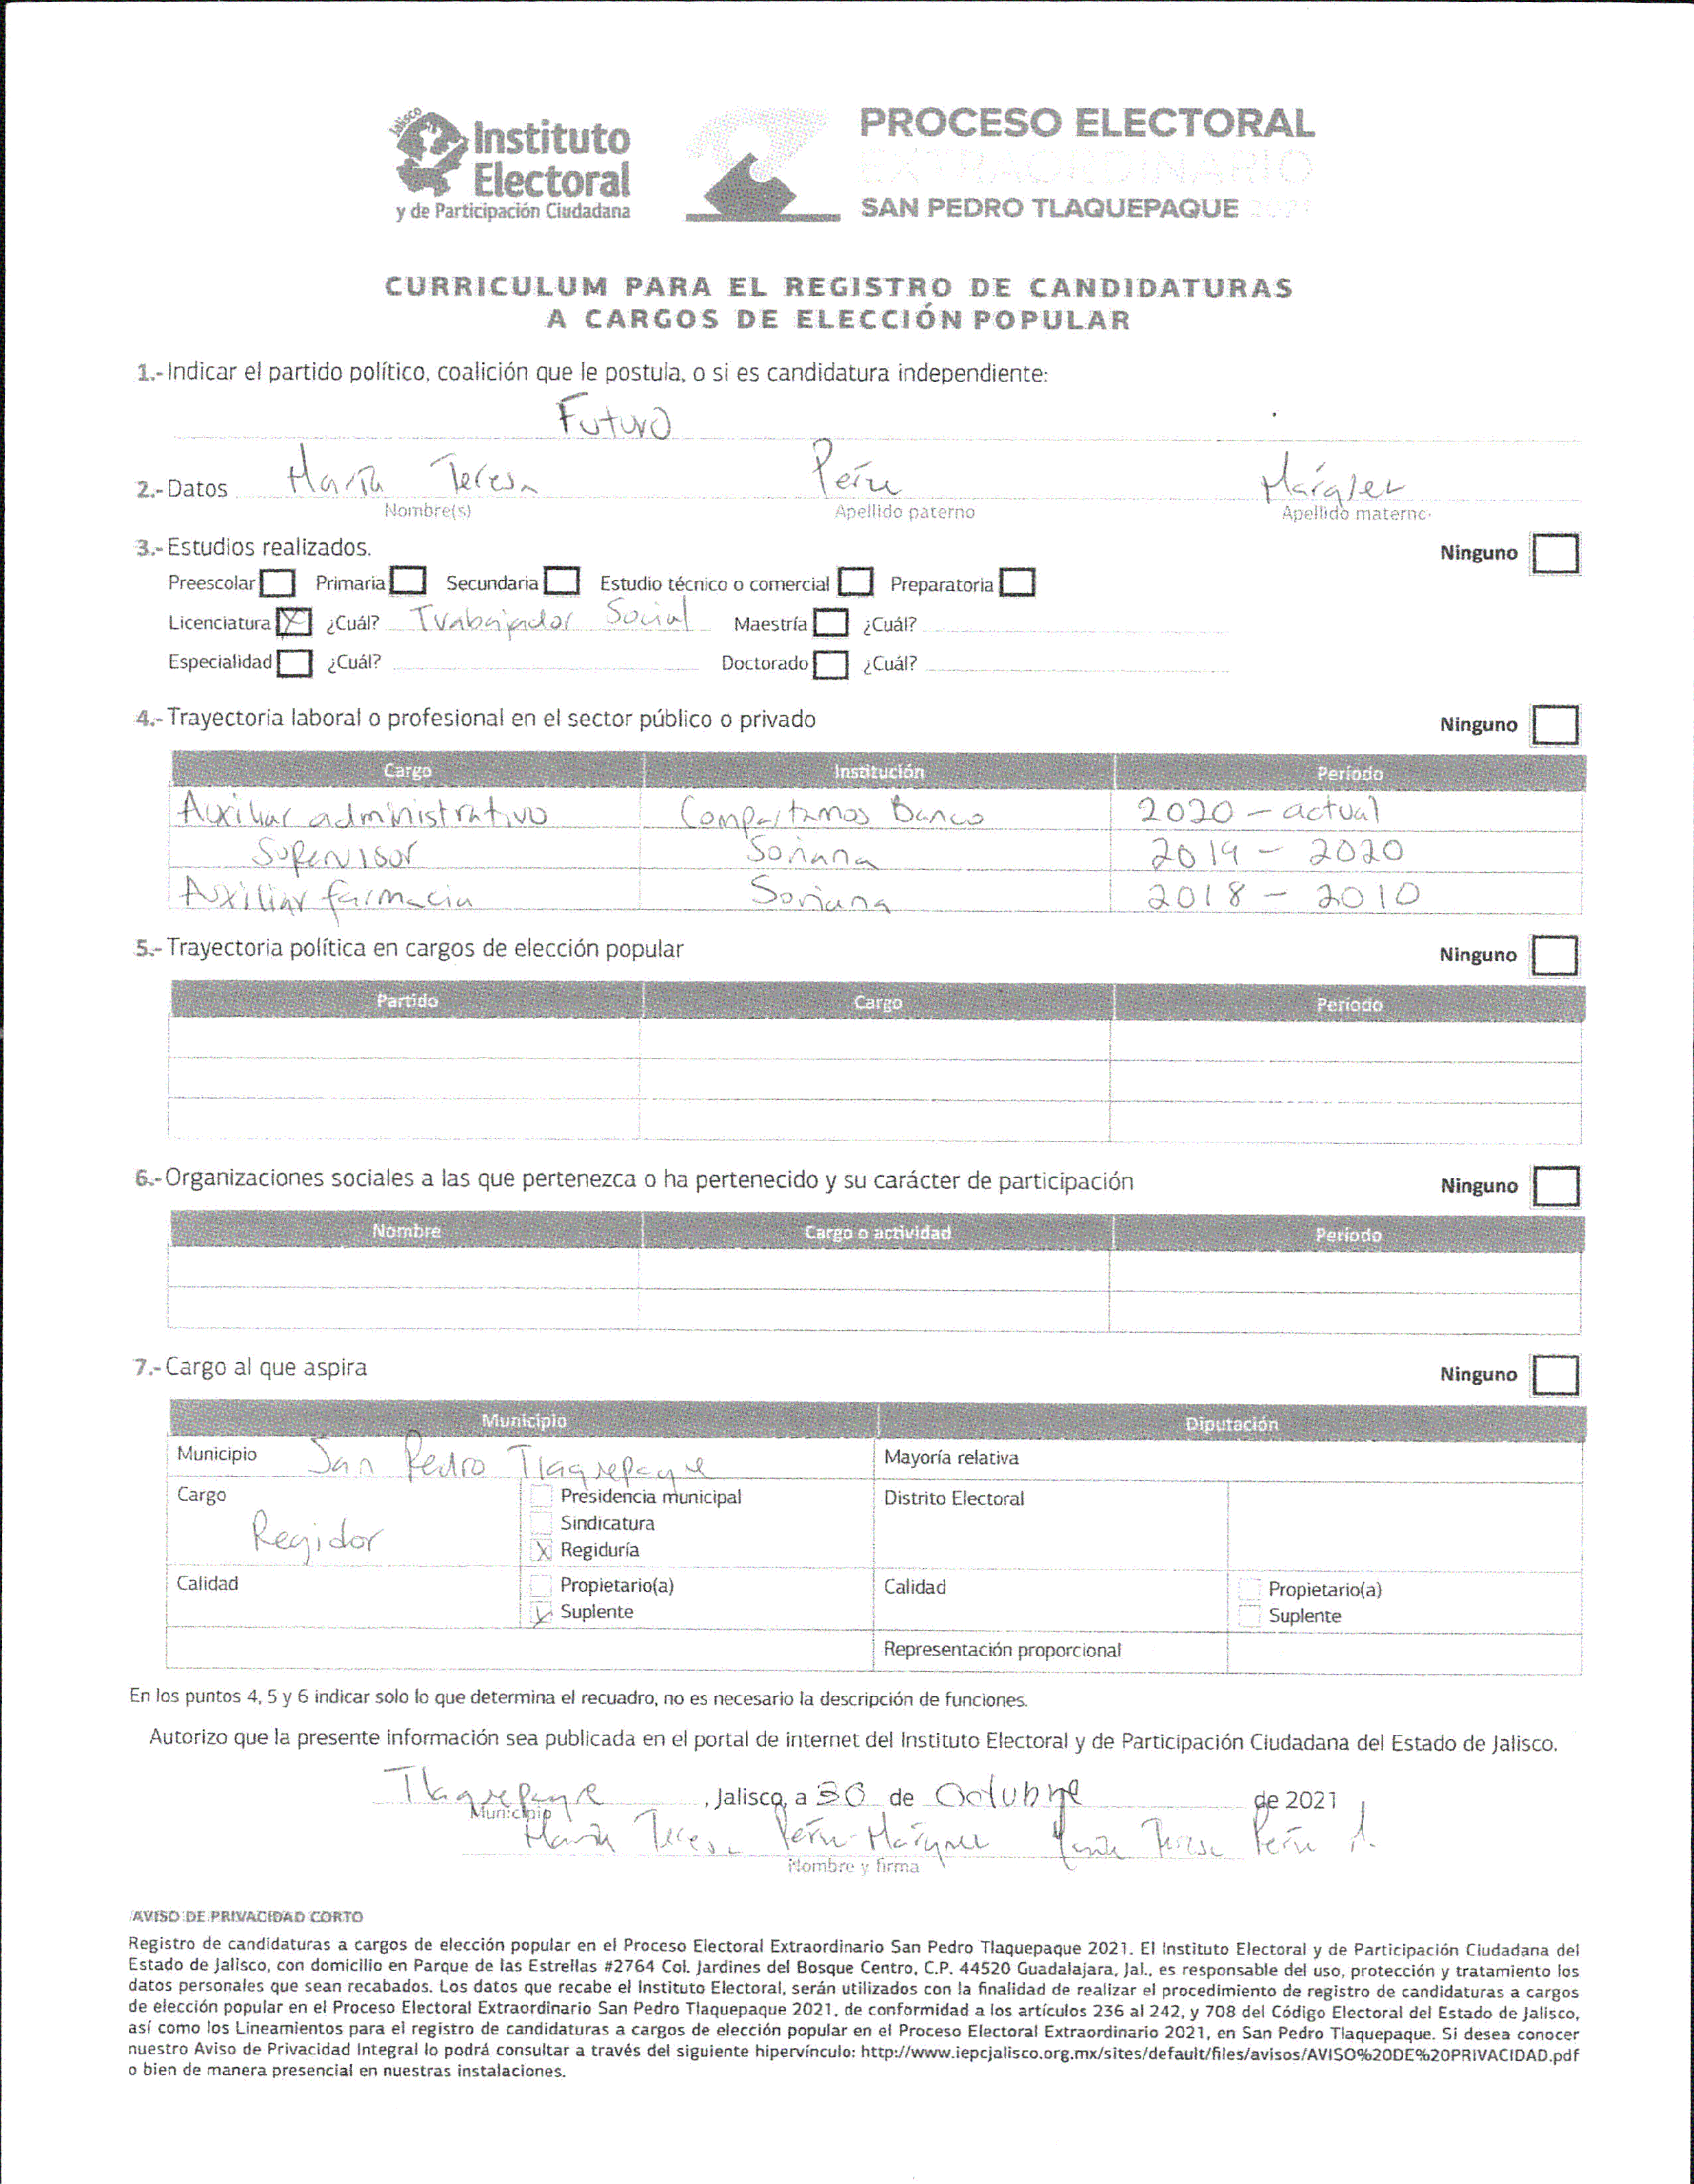 Jalisco
Instituto
Electoral
y de Participación Ciudadana
PROCESO ELECTORAL
EXTRAORDINARIO
SAN PEDRO TLAQUEPAQUE 2021
CURRICULUM PARA EL REGISTRO DE CANDIDATURAS
A CARGOS DE ELECCIÓN POPULAR
1.- Indicar el partido político, coalición que le postula, o si es candidatura independiente:
Futuro
2.- Datos María Teresa Peña Márquez
Nombre(s) Apellido paterno Apellido materno
3.- Estudios realizados. Ninguno
Preescolar Primaria Secundaria Estudio técnico o comercial Preparatoria
Licenciatura X ¿Cuál? Trabajador Social Maestría ¿Cuál?
Especialidad ¿Cuál? Doctorado ¿Cuál?
4.- Trayectoria laboral o profesional en el sector público o privado Ninguno
Cargo Institución Período
Auxiliar administrativo Compartamos Banco 2020 - actual
Supervisor Soriana 2019 - 2020
Auxiliar farmacia Soriana 2018 - 2010
5.- Trayectoria política en cargos de elección popular Ninguno
Partido Cargo Período
6.- Organizaciones sociales a las que pertenezca o ha pertenecido y su carácter de participación Ninguno
Nombre Cargo o actividad Período
7.- Cargo al que aspira Ninguno
Municipio Diputación
Municipio San Pedro Tlaquepaque Mayoría relativa
Cargo Presidencia municipal Distrito Electoral
Sindicatura
Regidor X Regiduría
Calidad Propietario(a) Calidad Propietario(a)
Suplente Suplente
Representación proporcional
En los puntos 4, 5 y 6 indicar solo lo que determina el recuadro, no es necesario la descripción de funciones.
Autorizo que la presente información sea publicada en el portal de internet del Instituto Electoral y de Participación Ciudadana del Estado de Jalisco.
Tlaquepaque, Jalisco, a 30 de Octubre de 2021
Municipio
María Teresa Peña Márquez María Teresa Peña M.
Nombre y firma
AVISO DE PRIVACIDAD CORTO
Registro de candidaturas a cargos de elección popular en el Proceso Electoral Extraordinario San Pedro Tlaquepaque 2021. El Instituto Electoral y de Participación Ciudadana del
Estado de Jalisco, con domicilio en Parque de las Estrellas #2764 Col. Jardines del Bosque Centro, C.P. 44520 Guadalajara, Jal., es responsable del uso, protección y tratamiento los
datos personales que sean recabados. Los datos que recabe el Instituto Electoral, serán utilizados con la finalidad de realizar el procedimiento de registro de candidaturas a cargos
de elección popular en el Proceso Electoral Extraordinario San Pedro Tlaquepaque 2021, de conformidad a los artículos 236 al 242, y 708 del Código Electoral del Estado de Jalisco,
así como los Lineamientos para el registro de candidaturas a cargos de elección popular en el Proceso Electoral Extraordinario 2021, en San Pedro Tlaquepaque. Si desea conocer
nuestro Aviso de Privacidad Integral lo podrá consultar a través del siguiente hipervínculo: http://www.iepcjalisco.org.mx/sites/default/files/avisos/AVISO%20DE%20PRIVACIDAD.pdf
o bien de manera presencial en nuestras instalaciones.